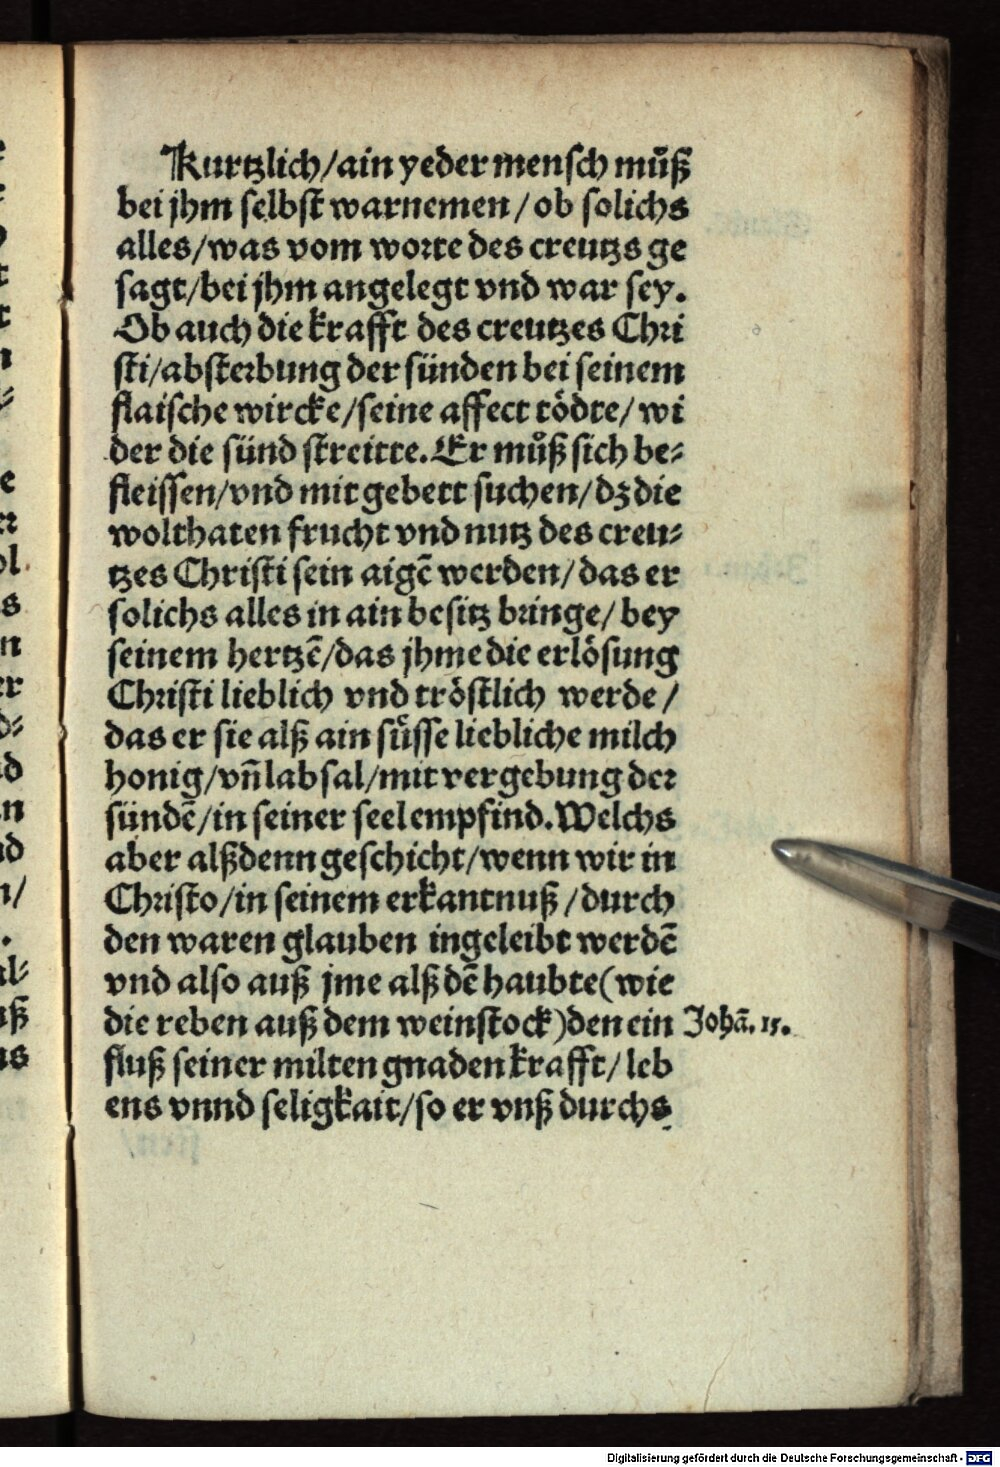 Kurtzlich/ain yeder mensch můß
bei jhm selbst warnemen/ob solichs
alles/was vom worte des creutzs ge
sagt/bei jhm angelegt vnd war sey.
Ob auch die krafft des creutzes Chri
sti/absterbung der sünden bei seinem
flaische wircke/seine affect tödte/wi
der die sünd streitte. Er můß sich be⸗
fleissen/vnd mit gebett suchen/dz die
wolthaten frucht vnd nutz des creu⸗
tzes Christi sein aigẽ werden/das er
solichs alles in ain besitz bringe/bey
seinem hertzẽ/das jhme die erlösung
Christi lieblich vnd tröstlich werde/
das er sie alß ain sůsse liebliche milch
honig/vñ labsal/mit vergebung der
sündẽ/in seiner seel empfind. Welchs
aber alßdenn geschicht/wenn wir in
Christo/in seinem erkantnuß/durch
den waren glauben ingeleibt werdẽ
vnd also auß jme alß dẽ haubte(wie
die reben auß dem weinstock)den ein
Johã. 15.
fluß seiner milten gnaden krafft/leb
ens vnnd seligkait/so er vnß durchs
Digitalisierung gefördert durch die Deutsche Forschungsgemeinschaft - DFG